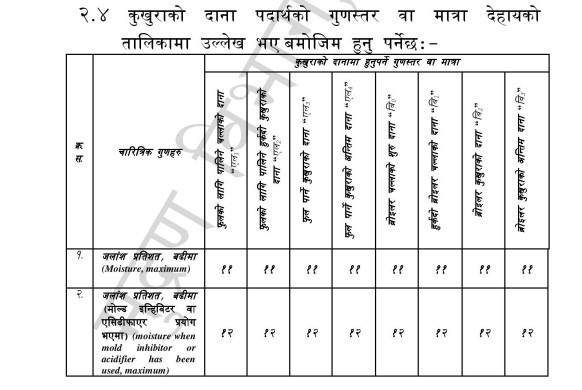 २.४ कुखुराको दाना पदार्थको गुणस्तर वा मात्रा देहायको
तालिकामा उल्लेख भए बमोजिम हुनु पर्नेछ:-
क्र स.
चारित्रिक गुणहरु
कुखुराको दानामा हुनुपर्ने गुणस्तर वा मात्रा
फुलको लागि पालिने चल्लाको दाना
फुलको लागि पालिने हुर्कदो कुखुराको
दाना
फुल पार्ने कुखुराको दाना
फुल पार्ने कुखुराको अन्तिम दाना
ब्रोइलर चल्लाको शुरु दाना
हुर्कदो ब्रोइलर चल्लाको दाना
ब्रोइलर कुखुराको दाना
ब्रोइलर कुखुराको अन्तिम दाना
१. जलांश प्रतिशत, बढीमा
(Moisture, maximum)
११ ११ ११ ११ ११ ११ ११ ११
२. जलांश प्रतिशत, बढीमा
(मोल्ड इन्हिबिटर वा
एसिडीफाएर प्रयोग
भएमा) (moisture when
mold inhibitor or
acidifier has been
used, maximum)
१२ १२ १२ १२ १२ १२ १२ १२